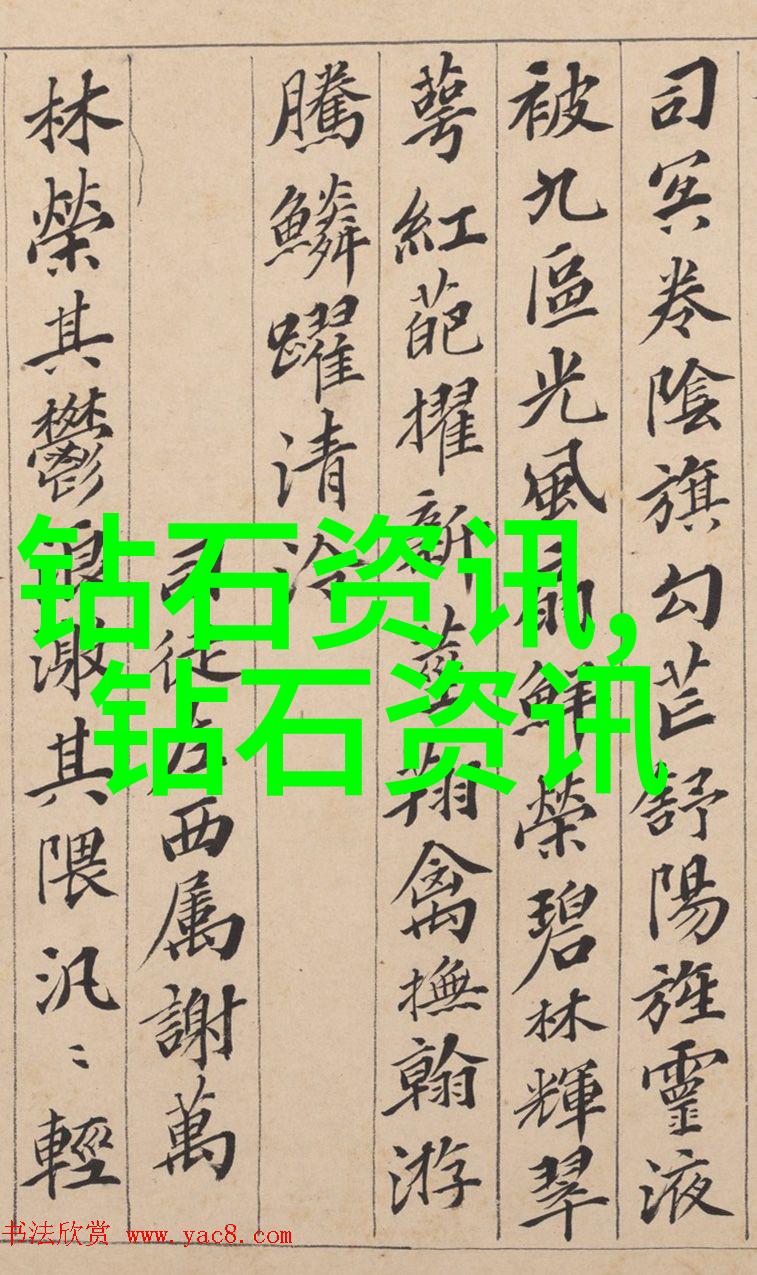 司冥卷陰旗勾芒舒陽旌靈液
被九區光風扇鮮榮碧林輝翠
萼紅葩擢新莖翔禽撫翰游
騰鱗躍清泠
司徒左西属謝萬
林榮其鬱浪激其隈汎〻輕
钻石资讯,
钻石资讯
书法欣赏 www.yac8.com